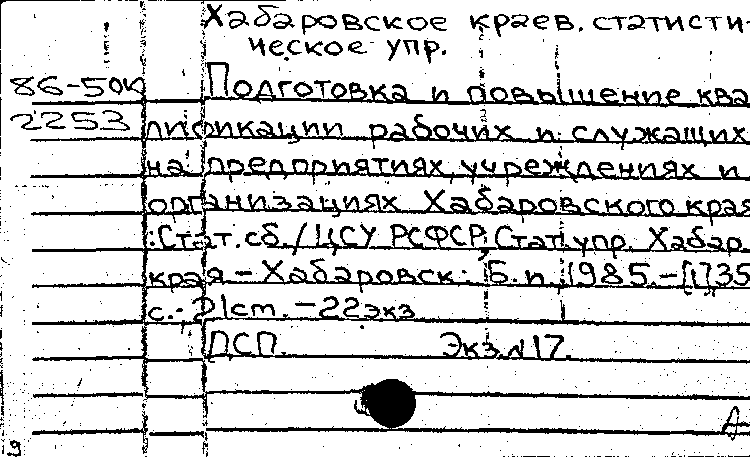 Хабаровское краев. статисти-
ческое упр.
86-50к
2253
Подготовка и повышение ква
лификации рабочих и служащих
на предприятиях, учреждениях и
организациях Хабаровского края
: Стат. сб. / ЦСУ РСФСР, Стат. упр. Хабар.
края - Хабаровск: Б.и., 1985. - [1]735
с. - 21 см. - 22 экз
ДСП. Экз. № 17.
А-
9